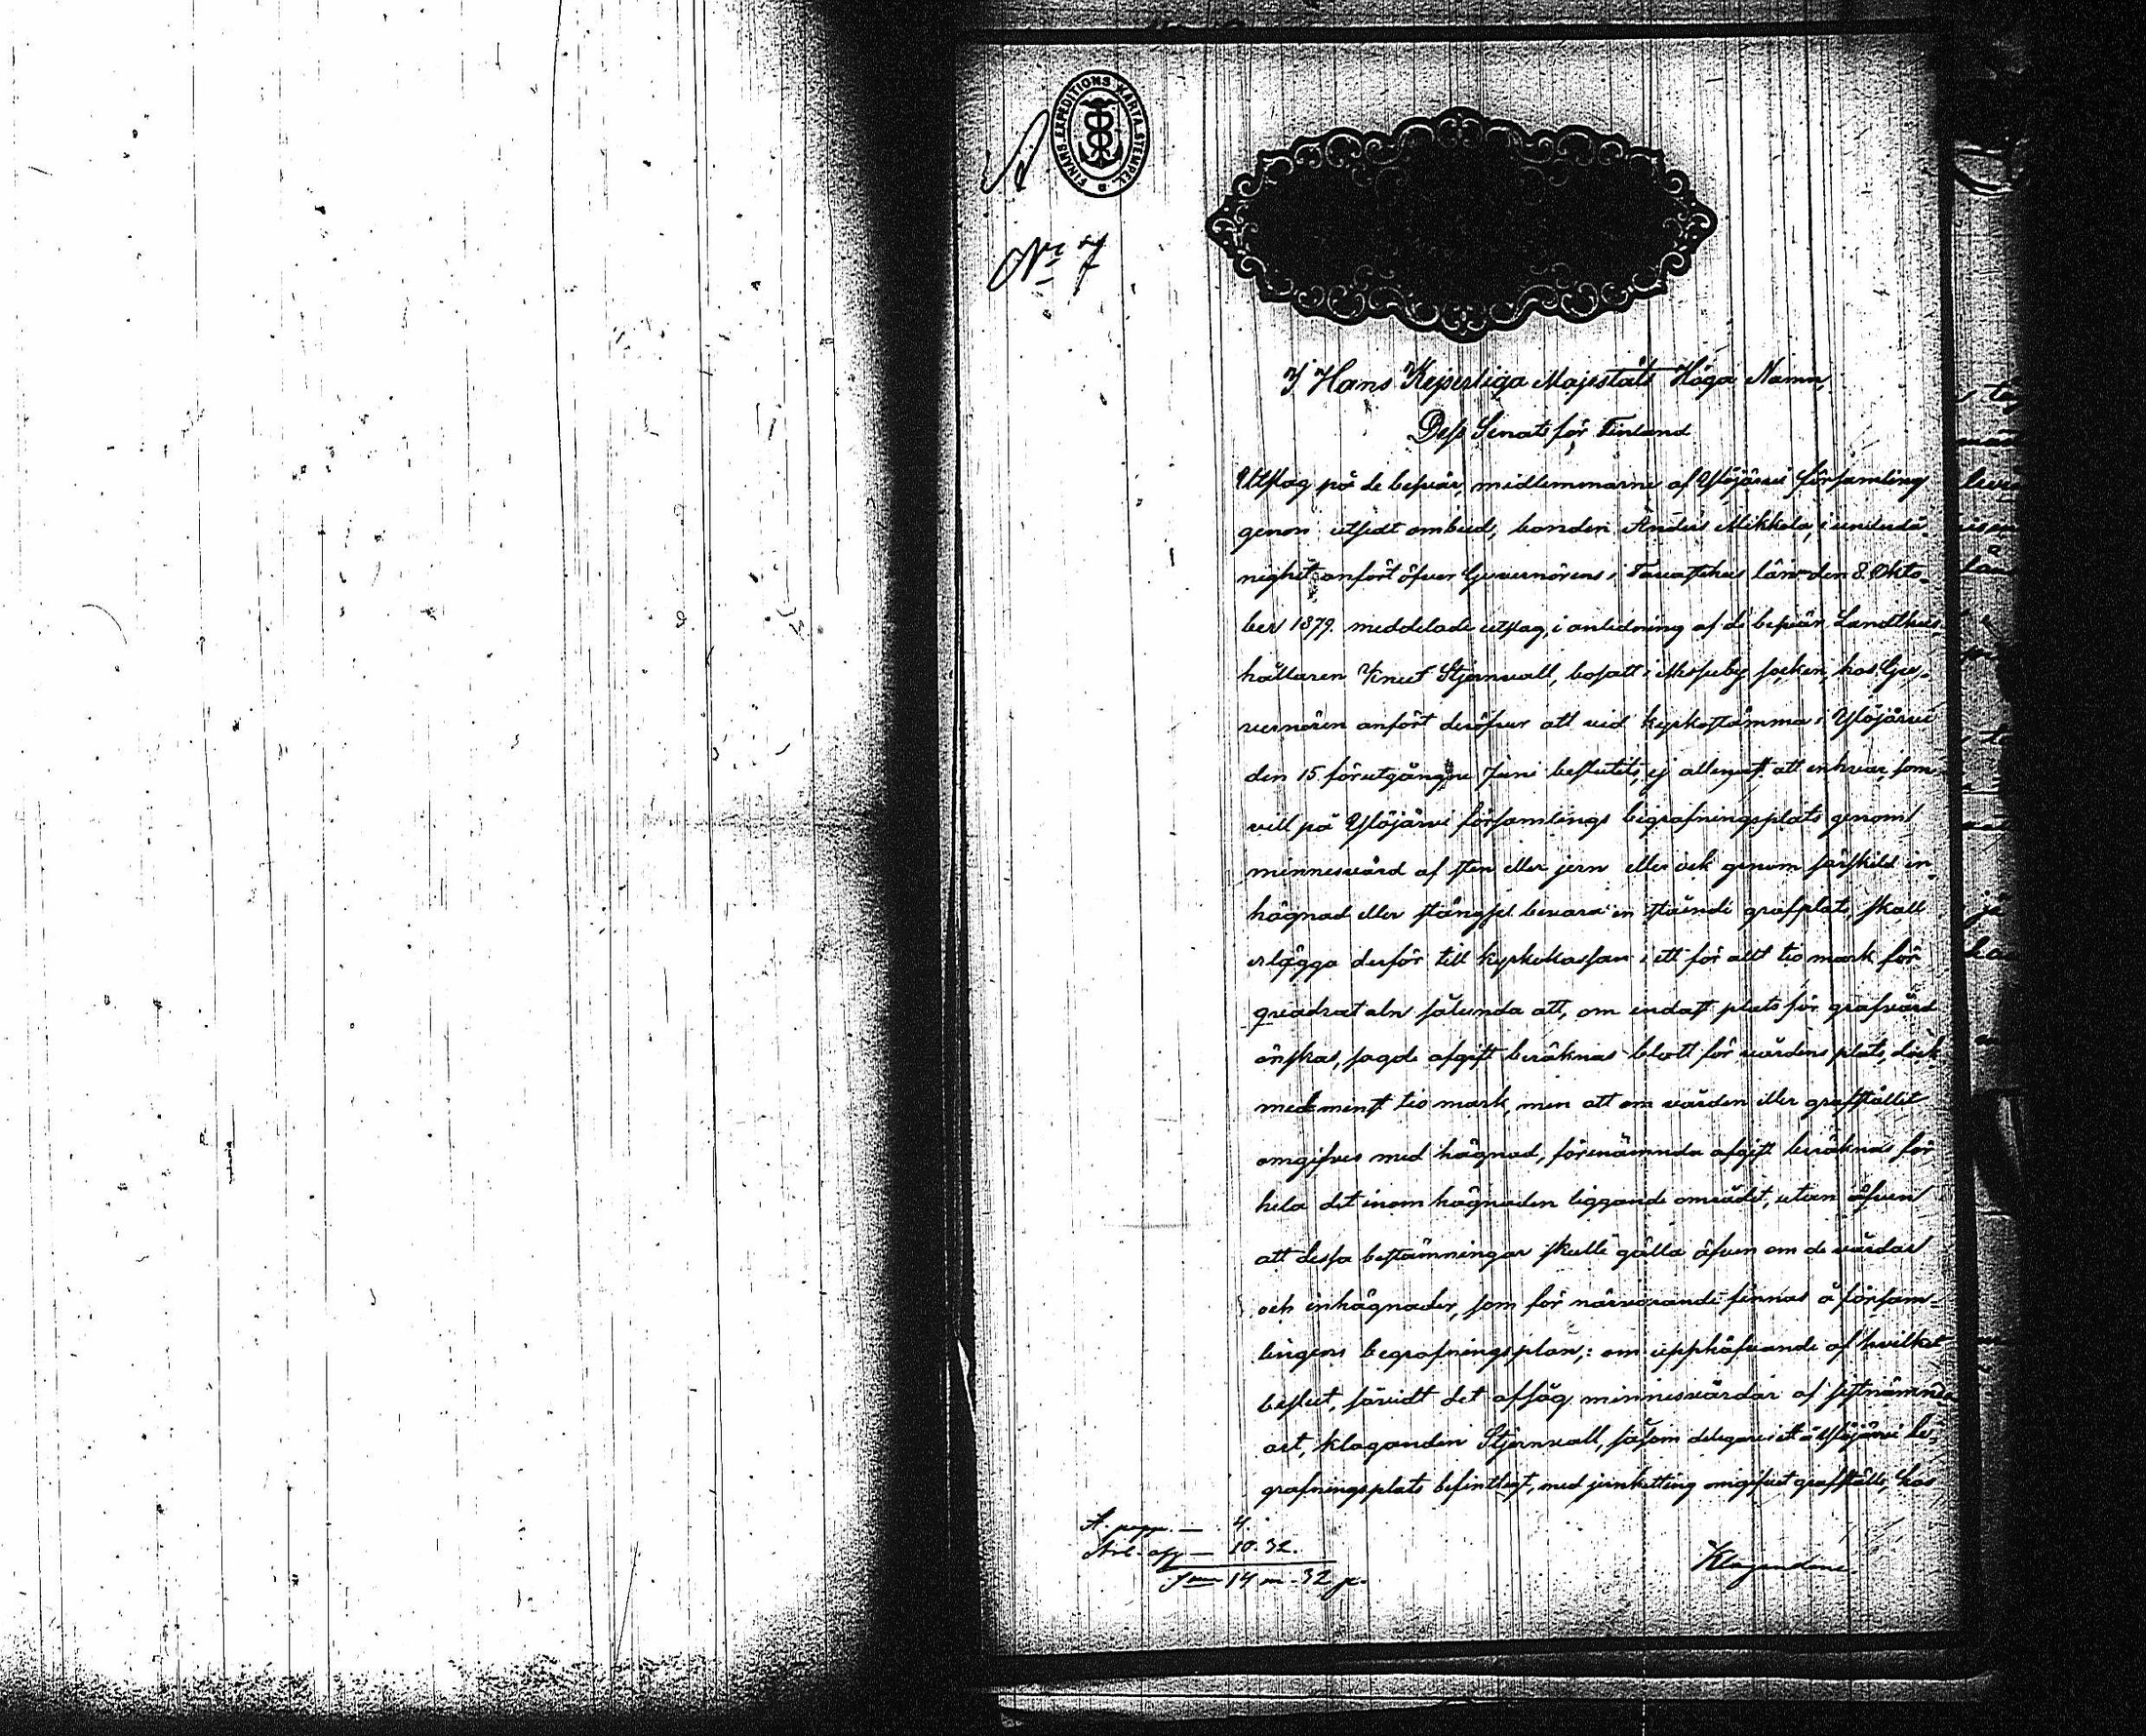 FINANS EXPEDITIONS KARTA STEMPEL
No 7
I Hans Kejserliga Majestäts Höga Namn,
Dess Senats för Finland
Utslag på de besvär, medlemmarne af Ylöjärvi församling
genom utsedt ombud, bonden Anders Mikkola, i underdå-
nighet anfört öfver Guvernörens i Tavastehus län den 8 Okto-
ber 1879 meddelade utslag, i anledning af de besvär Landthus-
hållaren Knut Stjernvall, bosatt i Messuby socken, hos Gu-
vernören anfört deröfver att vid kyrkostämma i Ylöjärvi
den 15 förutgångne Juni beslutits, ej allenast att enhvar, som
vill på Ylöjärvi församlings begrafningsplats genom
minnesvård af sten eller jern eller ock genom särskild in-
hägnad eller stängsel bevara en ståendе grafplats, skall
erlägga derför till kyrkokassan i ett för allt tio mark för
qvadrat aln sålunda att, om endast plats för grafvård
önskas, sagde afgift beräknas blott för vårdens plats, dock
med minst tio mark, men att om vården eller grafstället
omgifves med hägnad, förenämnda afgift beräknas för
hela det inom hägnaden liggande området, utan äfven
att dessa bestämningar skulle gälla äfven om de vårdar
och inhägnader, som för närvarande finnas å försam-
lingens begrafningsplan; om upphäfvande af hvilket
beslut, såvidt det afsåg minnesvårdar af sistnämnda
art, klaganden Stjernvall, såsom delegare i ett å Ylöjärvi be-
grafningsplats befintligt, med jernketting omgifvet grafställe, hos
4.
10.32.
14 m. 32 p.
Klagandene.